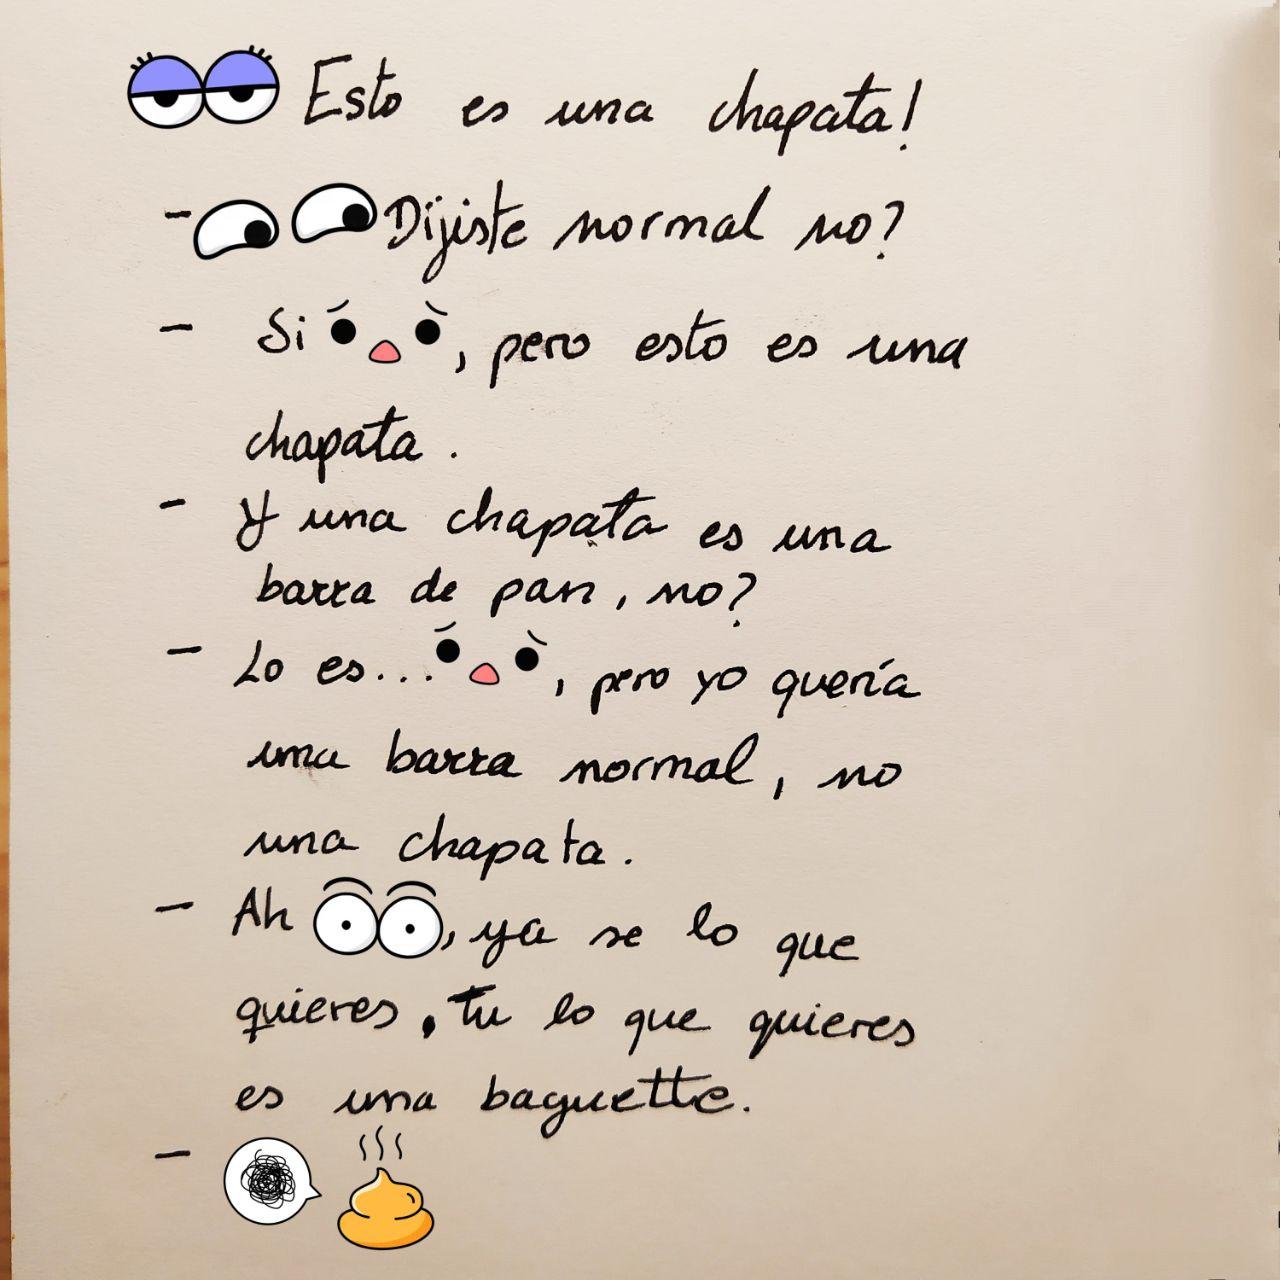 Esto es una chapata!
- Dijiste normal no?
- Si, pero esto es una
chapata.
- Y una chapata es una
barra de pan, no?
- Lo es..., pero yo quería
una barra normal, no
una chapata.
- Ah, ya se lo que
quieres, tu lo que quieres
es una baguette.
-